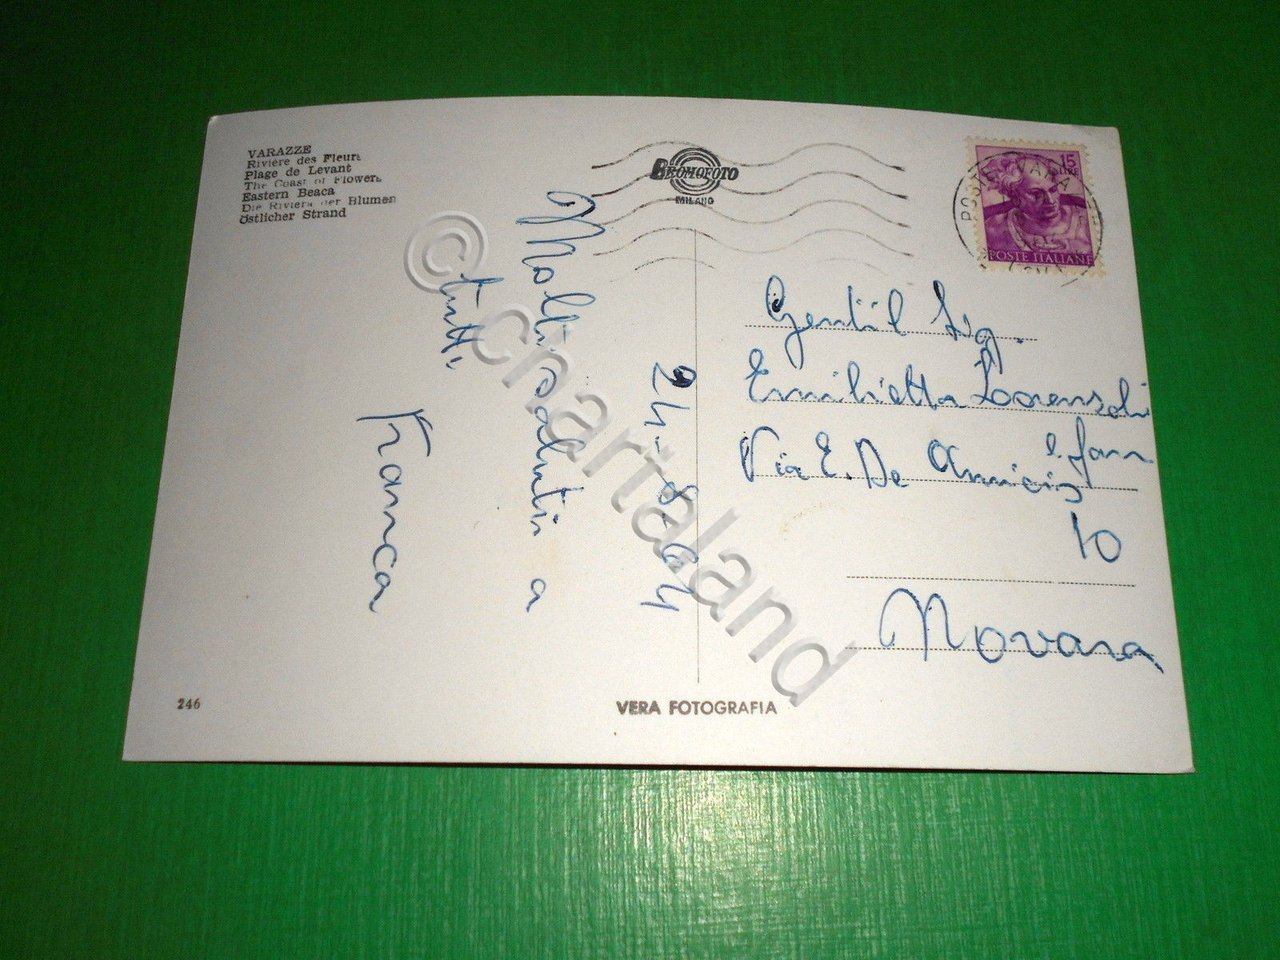 VARAZZE
Rivière des Fleurs
Plage de Levant
The Coast of Flowers
Eastern Beaca
Die Riviera der Blumen
Östlicher Strand
BROMOFOTO
MILANO
15
LIRE
POSTE ITALIANE
24-8-64
Molti saluti a
tutti
Franca
Gentil Sig.
Emilietta Lorenschi
e fam
Via E. De Amicis
10
Novara
246
VERA FOTOGRAFIA
© chartaland